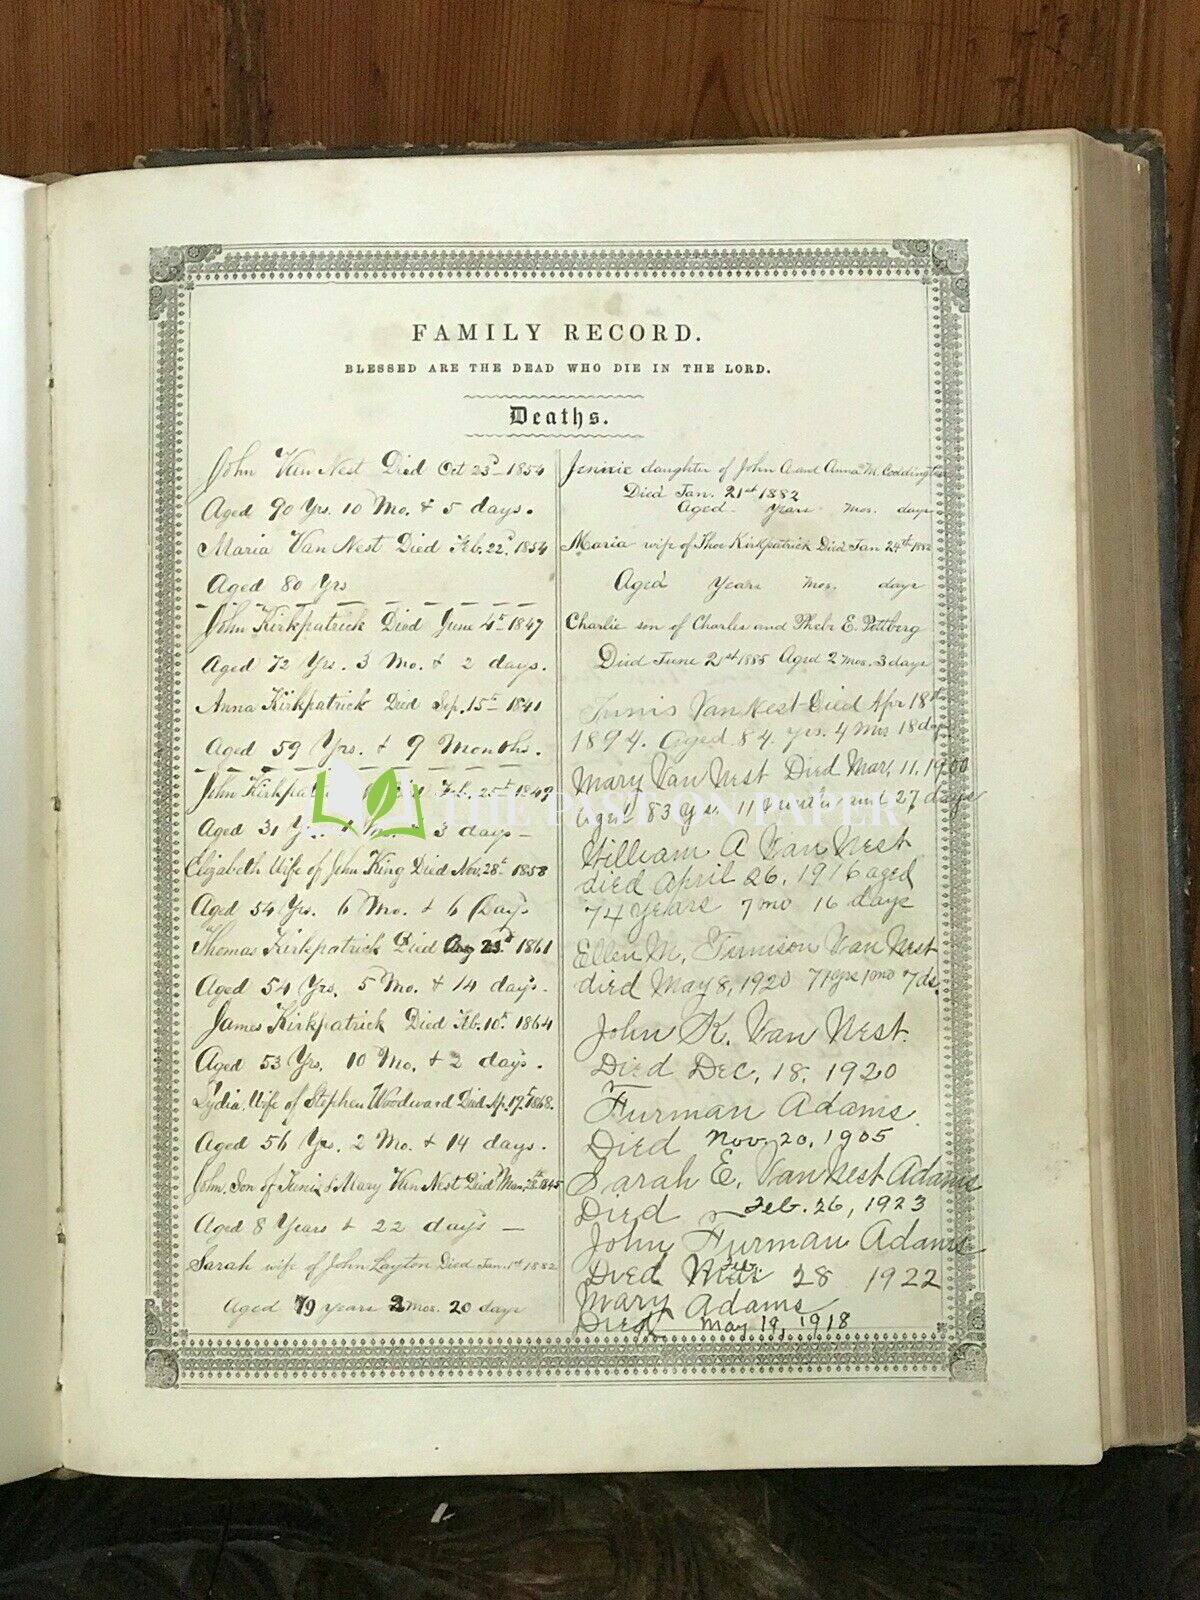 FAMILY RECORD.
BLESSED ARE THE DEAD WHO DIE IN THE LORD.
Deaths.
John Van Nest Died Oct 23d 1854
Aged 90 Yrs. 10 Mo. & 5 days.
Maria Van Nest Died Feb. 22d. 1854
Aged 80 Yrs
John Kirkpatrick Died June 4th 1847
Aged 72 Yrs. 3 Mo. & 2 days.
Anna Kirkpatrick Died Sep. 15th 1841
Aged 59 Yrs. & 9 Months.
John Kirkpatrick Feb. 25th
Aged 31 Yrs. 3 days
Elizabeth Wife of John King Died Nov. 28th 1858
Aged 54 Yrs. 6 Mo. & 6 Days
Thomas Kirkpatrick Died Aug 23d 1861
Aged 54 Yrs. 5 Mo. & 14 days.
James Kirkpatrick Died Feb. 10th. 1864
Aged 53 Yrs. 10 Mo. & 2 days.
Lydia, Wife of Stephen Woodward Died Ap. 17th 1868.
Aged 56 Yrs. 2 Mo. & 14 days.
John, Son of Tunis & Mary Van Nest Died 1845
Aged 8 Years & 22 days
Sarah wife of John Layton Died Jan. 1st 1882
Aged 79 years 2 mos. 20 days
Jennie daughter of John A and Anna M. Coddington
Died Jan. 21st 1882
Aged years mos. days
Maria wife of Thos Kirkpatrick Died Jan 24th 1882
Aged years mos. days
Charlie son of Charles and Phebe E. Pottberg
Died June 21st 1885 Aged 2 mos. 3 days
Tunis Van Nest Died Apr 18th
1894. Aged 84 yrs. 4 Mos 18 days
Mary Van Nest Died Mar. 11. 1900
aged 83 yrs. 11 months and 27 days
William A Van Nest
died April 26, 1916 aged
74 years 7 mo 16 days
Ellen M. Tunison Van Nest
died May 8, 1920 71 yrs 1 mo 7 ds.
John K. Van Nest.
Died Dec. 18, 1920
Furman Adams.
Died Nov. 20, 1905
Sarah E. Van Nest Adams
Died Feb. 26, 1923
John Furman Adams
Died Feb. 28 1922
Mary Adams
Died May 19, 1918
THE PAST ON PAPER